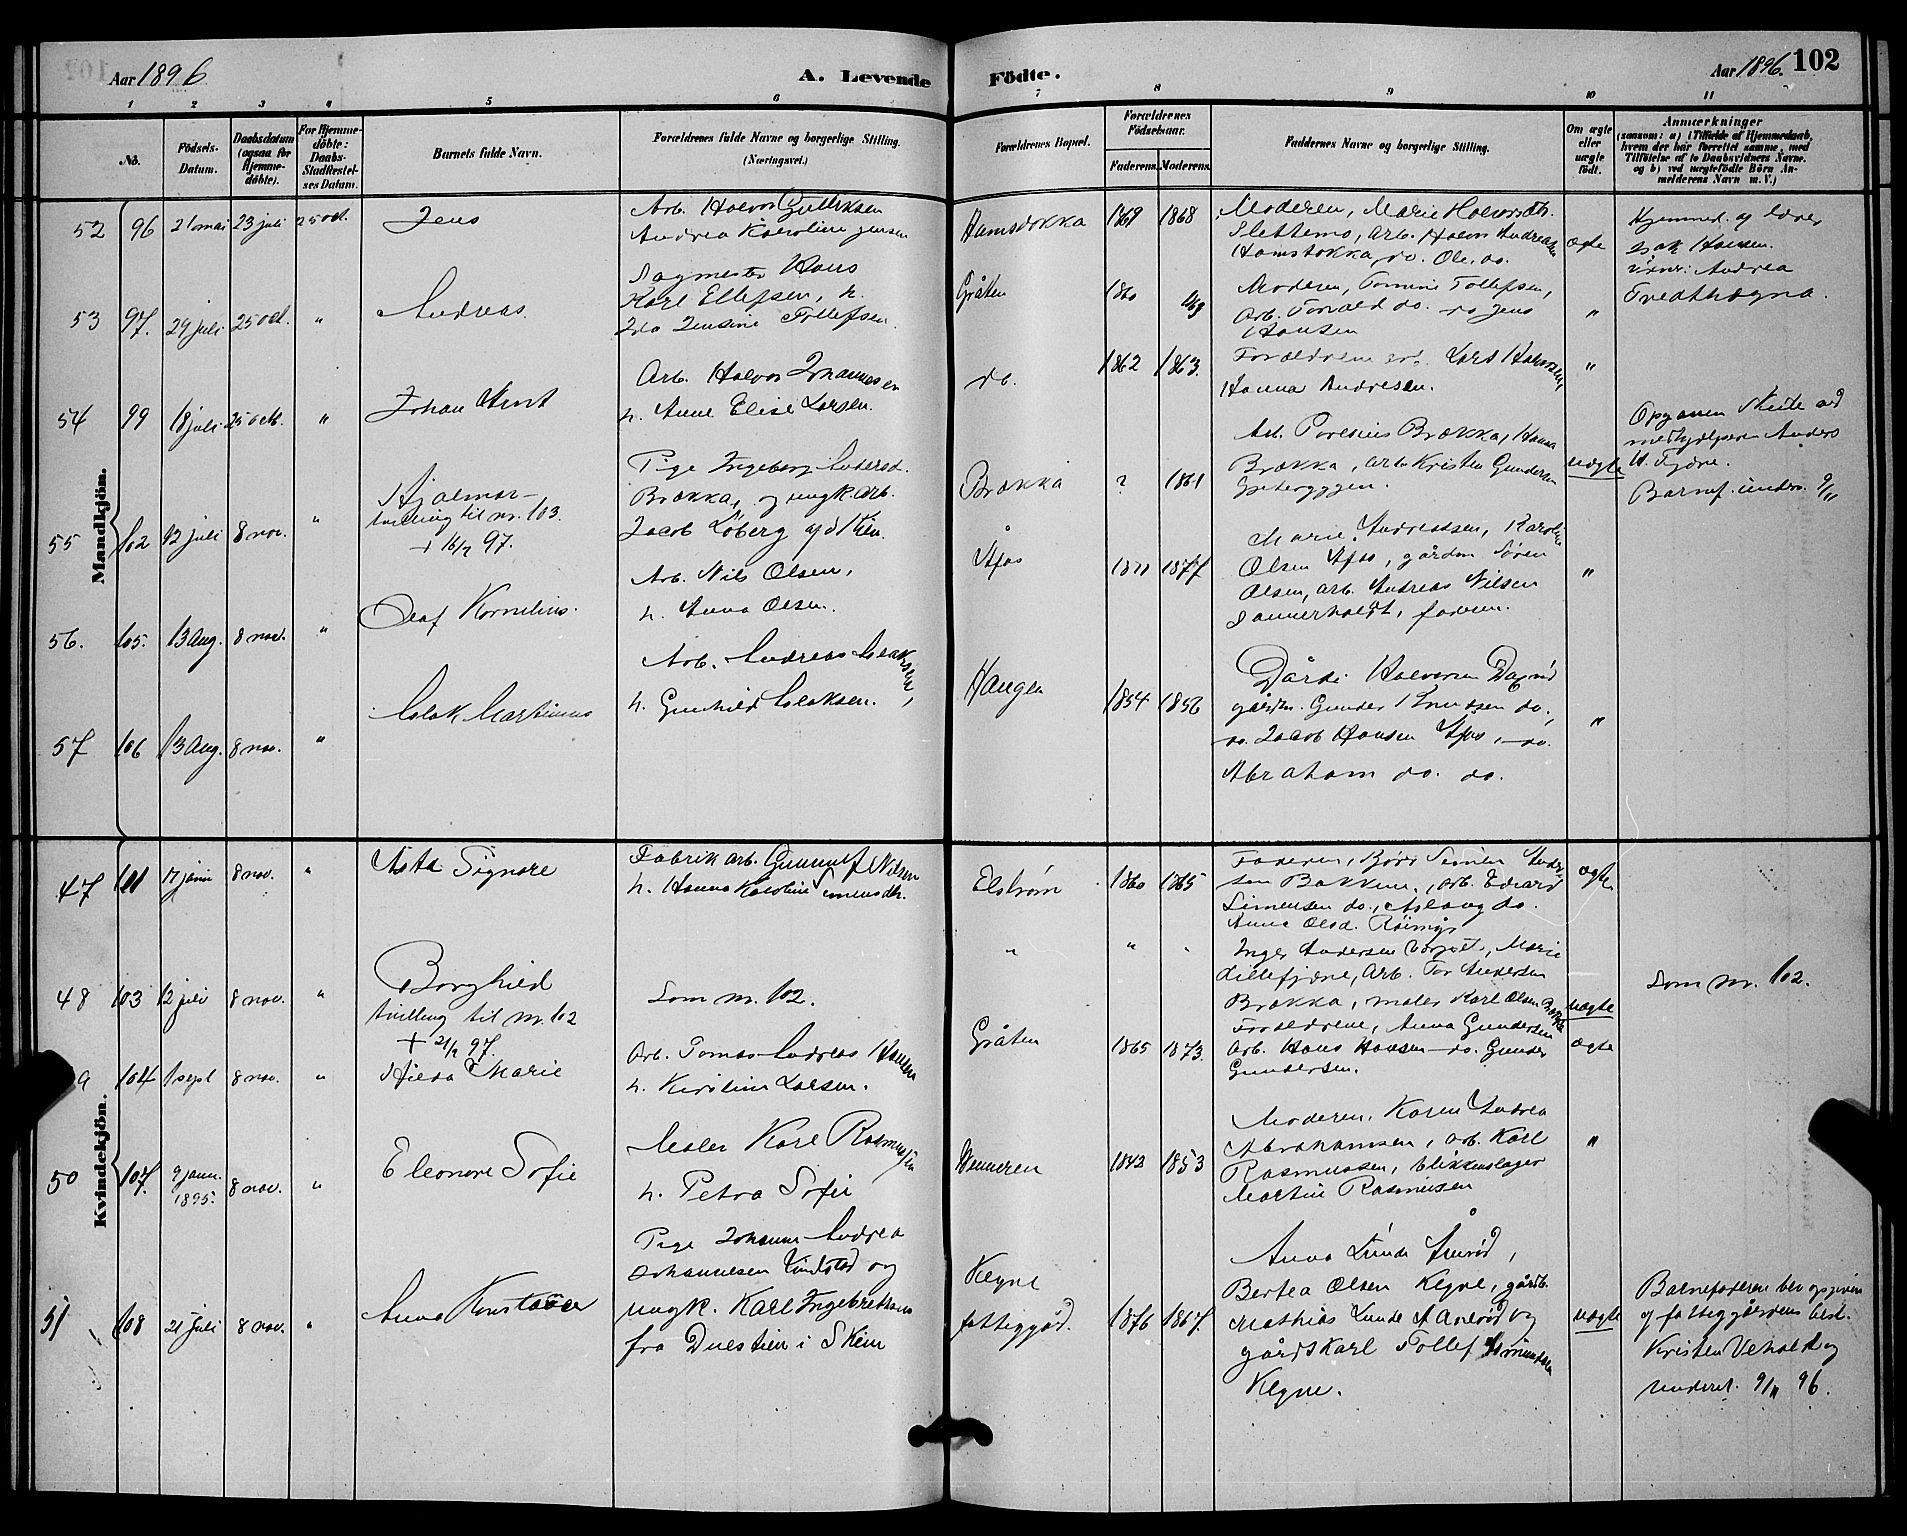 102
Aar 1896
A. Levende
Födte.
Aar 1896.
1 2 3 4 5 6 7 8 9 10 11
No.
Födsels-
Datum.
Daabsdatum
(ogsaa for
Hjemme-
döbte).
For Hjemme-
döbte:
Daabs-
Stadfæstel-
ses Datum.
Barnets fulde Navn.
Forældrenes fulde Navne og borgerlige Stilling.
(Næringsvei.)
Forældrenes Bopæl.
Forældrenes
Födselsaar.
Faderens. Moderens.
Faddernes Navne og borgerlige Stilling.
Om ægte
eller
uægte
födt.
Anmærkninger
(saasom: a) i Tilfælde af Hjemmedaab,
hvem der har forrettet samme, med
Tilföielse af to Daabsvidners Navne.
og b) ved uægtefödte Börn An-
melderens Navn m. V.)
Mandkjön.
52 96 21 mai 23 juli 25 oct.
Jens
Arb. Halvor Gulliksen
Andrea Karoline Jensen
1869 1868
Moderen, Marie
Slettemo, arb. Halvor Andreasen
do. Ole do.
ægte
Hjemmed. af lærer
Isak Hansen.
Andrea
53 97. 29 juli 25 oct. "
Andreas.
Sagmester Hans
Karl Ellefsen, h.
Ida Jensine Tollefsen.
Gråten
1860
Moderen, Tollefsen,
Arb. do. do Jens
Hansen
"
54 99 18 juli 25 oct. "
Johan
Arb. Halvor Johannesen
h. Anne Elise Larsen.
do.
1862 1863.
Forældrene Lars
Hanna Andresen.
"
55 102 12 juli 8 nov. "
Hjalmar
tvilling til nr. 103.
+ 16/2 97.
Pige Ingeborg Andersd.
Brækka, og ungk. arb.
Jacob Löberg af Skien.
Brækka
? 1861
Arb. Brækka, Hanna
Brækka, arb. Kristen Gundersen
uægte
medhjælperen Anders
Barnef. underr. 9/11
56. 105. 13 Aug. 8 nov. "
Olaf Kornelius.
Arb. Nils Olsen,
h. Anna Olsen.
1877
Marie Andreassen, Karoline
Olsen gårdm. Sören
Olsen, arb. Andreas Nilsen
faderen.
"
57 106 13 Aug. 8 nov. "
Aslak Martinius
Arb. Andreas Aslaksen,
h. Gunhild Aslaksen.
Haugen
1854 1856
Halvorsen
gårdm. Gunder Knudsen do.,
do. Jacob Hansen do.
Abraham do. do.
"
Kvindekjön.
47 101 17 juni 8 nov. "
Asta Signore
Fabrik arb. Gunnulf Nilsen
h. Hanna Karoline Simensdtr.
Elström
1860 1865
Faderen, Simen Ander-
sen Bakken, arb. Edvard
Simensen do., Aslaug do.
Anna Olsd.
ægte
48 103 12 juli 8 nov. "
Borghild
tvilling til nr. 102
+ 21/2 97.
Som nr. 102.
" " "
Inger Andersen Marie
Lillefjære, Arb. Tor Andersen
Brækka, maler Karl Olsen
uægte
Som nr. 102.
104 1 sept 8 nov. "
Hilda Marie
Arb. Tomas Andreas Hansen
h. Kirstine Larsen.
Gråten
1865 1873.
Forældrene, Anna Gundersen
Arb. Hans Hansen do. Gunder
Gundersen.
ægte
50 107. 9 janu. 8 nov. "
1895.
Eleonore Sofie
Maler Karl Rasmussen
h. Petra Sofie
1842 1853
Moderen, Karen Andrea
Abrahamsen, arb. Karl
Rasmussen, blikkenslager
Martin Rasmussen
"
51 108 21 juli 8 nov. "
Anna
Pige Johanne Andrea
Johannesen Lindstad og
ungk. Karl Ingebretsens
fra Duestien i Skien
Kleyve
fattiggård.
1876 1867.
Anna Lunde
Bertea Olsen Kleyve, gårdb.
Mathias Lunde og
gårdskarl Tollef
Kleyve.
uægte
Barnefaderen blev opgiven
af fattiggårdens best.
Kristen og
underret. 9/11 96.